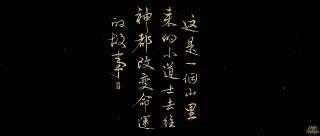 这是一個山里
来的小道士去往
神都改变命運
的故事